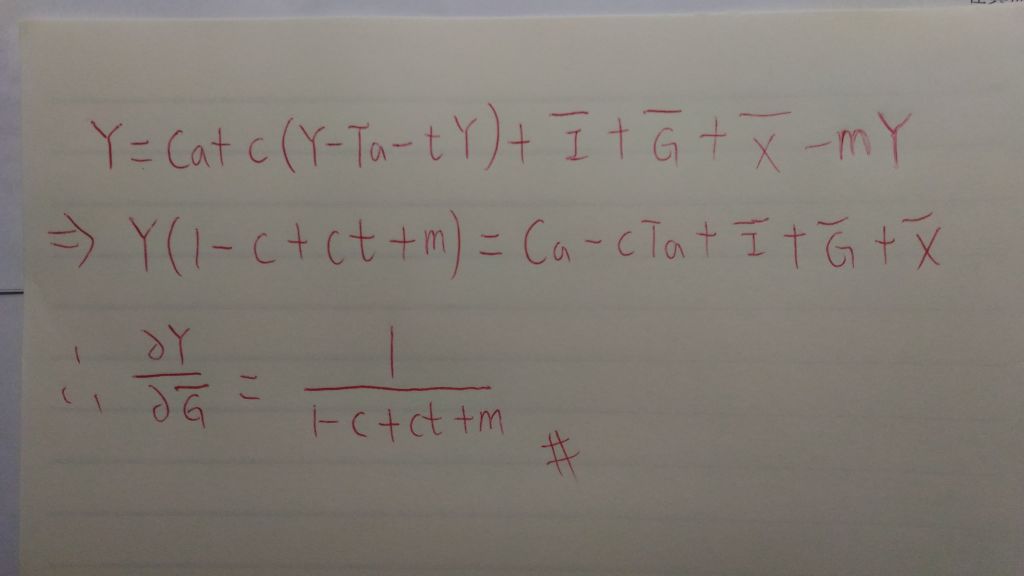 Y = Ca + c(Y - Ta - tY) + I̅ + G̅ + X̅ - mY
⇒ Y(1 - c + ct + m) = Ca - cTa + I̅ + G̅ + X̅
∴ ∂Y/∂G̅ = 1/(1 - c + ct + m) #